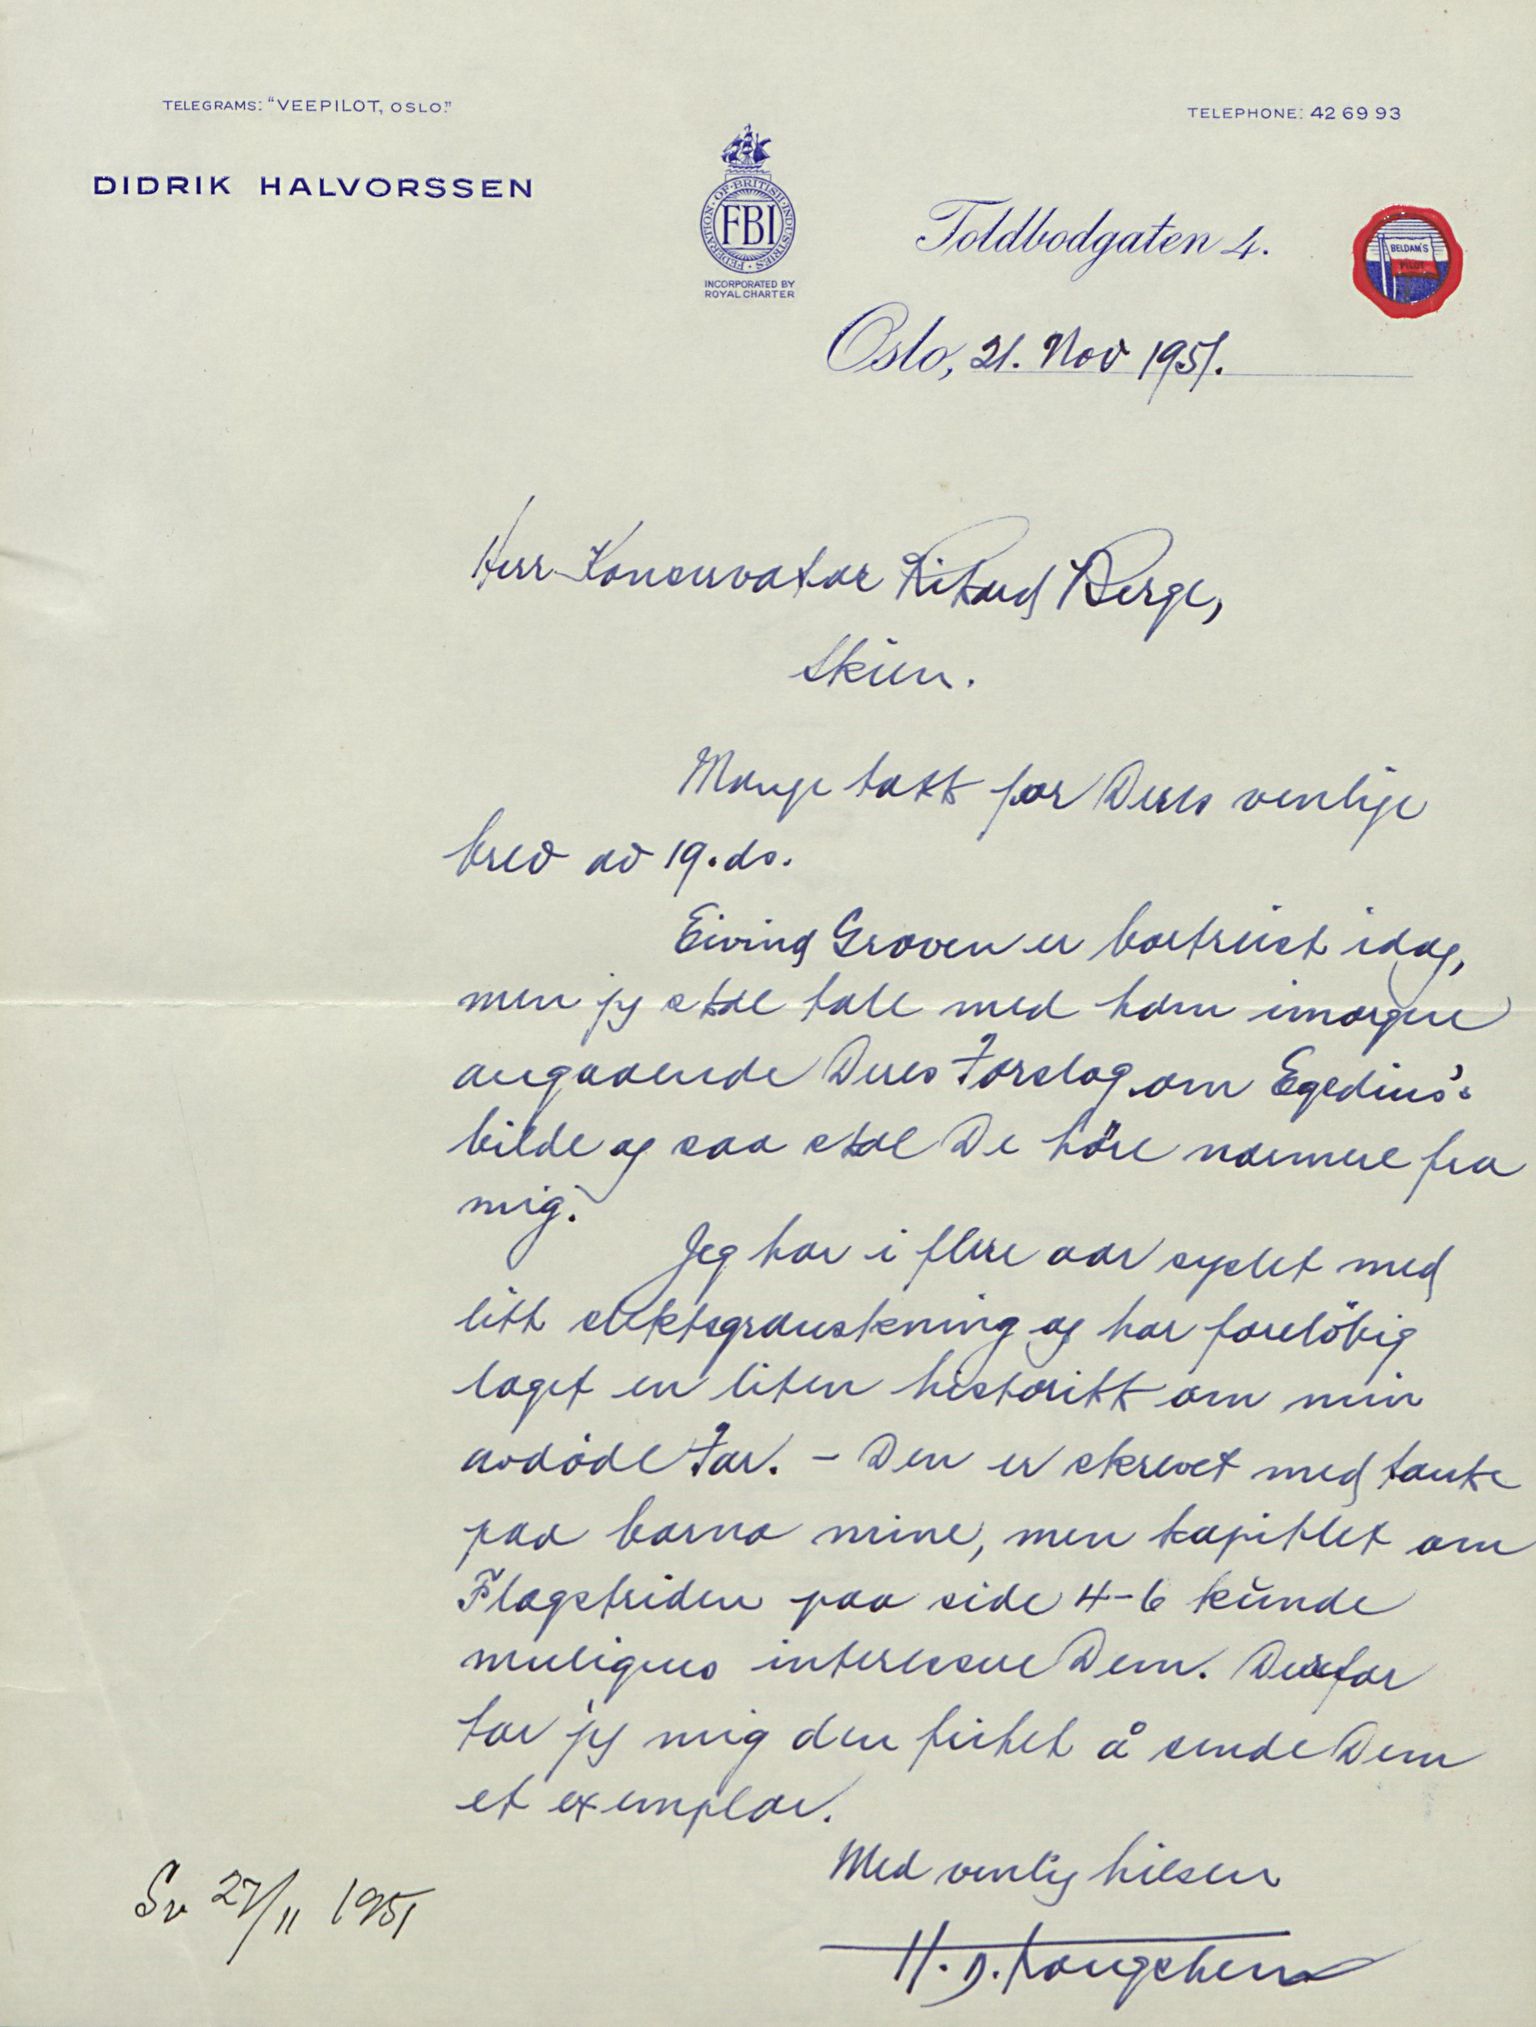 TELEGRAMS: "VEEPILOT, OSLO."
TELEPHONE: 42 69 93
DIDRIK HALVORSSEN
FEDERATION · OF · BRITISH · INDUSTRIES
FBI
INCORPORATED BY
ROYAL CHARTER
Toldbodgaten 4.
BELDAM'S
PILOT
Oslo, 21. Nov 1951.
Herr Konservator Rikard Berge,
Skien.
Mange takk for Deres venlige
brev av 19. ds.
Eivind Groven er bortreist idag,
men jeg skal tale med ham imorgen
angaaende Deres Forslag om Egedius's
bilde og saa skal De høre nærmere fra
mig.
Jeg har i flere aar syslet med
litt slektsgranskning og har foreløbig
laget en liten historikk om min
avdøde Far. – Den er skrevet med tanke
paa barna mine, men kapitlet om
Flagstriden paa side 4-6 kunde
muligens interessere Dem. Derfor
tar jeg mig den frihet å sende Dem
et exemplar.
Med venlig hilsen
H. D.
Sv 27/11 1951